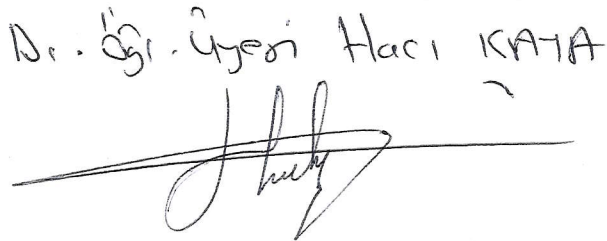 Dr. Öğr. Üyesi Hacı KAYA